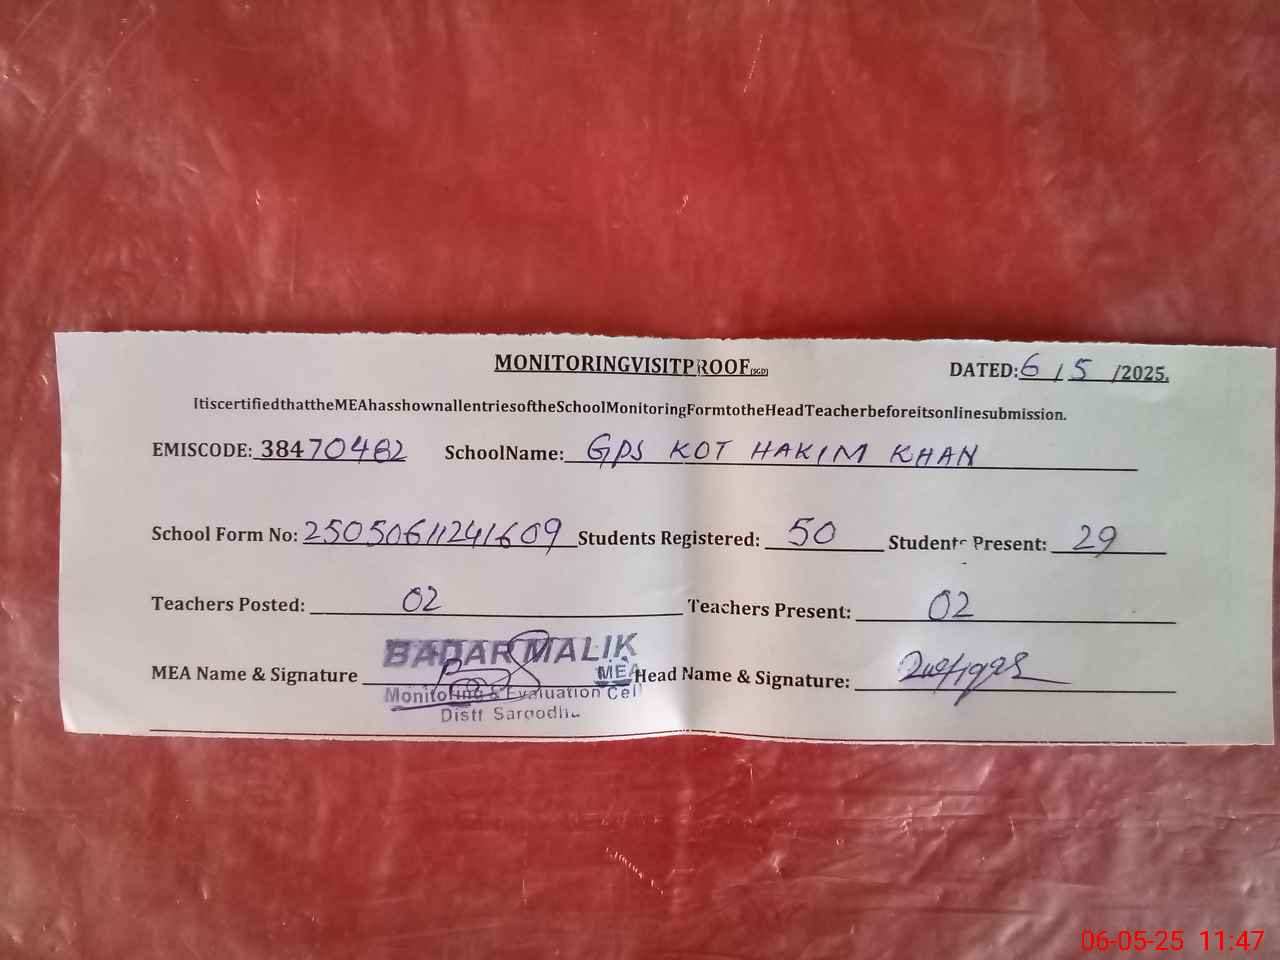 MONITORINGVISITPROOF(SGD) DATED: 6/5/2025.
ItiscertifiedthattheMEAhasshownallentriesoftheSchoolMonitoringFormtotheHeadTeacherbeforeitsonlinesubmission.
EMISCODE: 38470482 SchoolName: GPS KOT HAKIM KHAN
School Form No: 25050611241609 Students Registered: 50 Students Present: 29
Teachers Posted: 02 Teachers Present: 02
BADAR MALIK
MEA Name & Signature MEA Head Name & Signature:
Monitoring & Evaluation Cell
Distt Sargodha
06-05-25 11:47